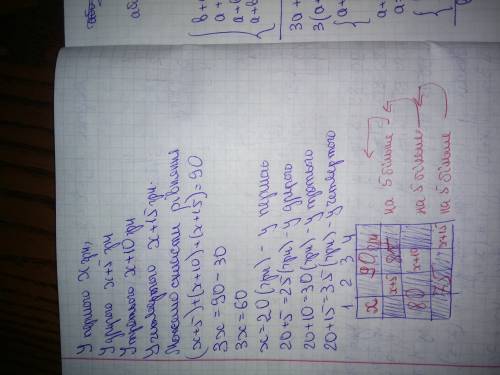 У першого x грн,
У другого x+5 грн
У третього x+10 грн
У четвертого x+15 грн.
Можемо скласти рівняння
(x+5)+(x+10)+(x+15)=90
3x=90-30
3x=60
x=20(грн) - у першого
20+5=25(грн)-у другого
20+10=30(грн)-у третього
20+15=35(грн)-у четвертого
1 2 3 4
x 90грн
x+5 85 на 5 більше
80 x+10 на 5 більше
75 x+15 на 5 більше
b+
a+
a+b
a+b
3a+
3(a+
a+